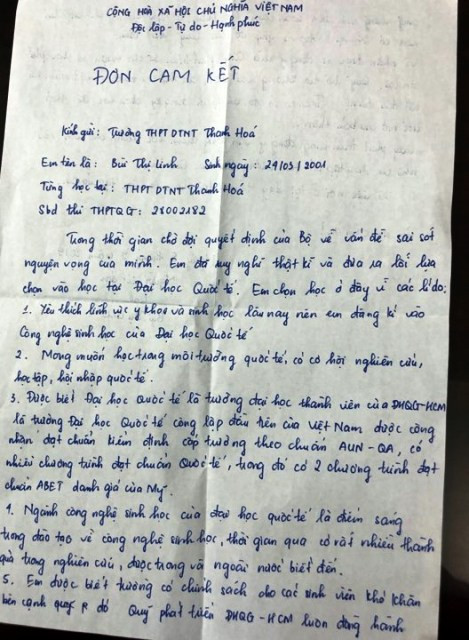 CỘNG HOÀ XÃ HỘI CHỦ NGHĨA VIỆT NAM
Độc lập - Tự do - Hạnh phúc
ĐƠN CAM KẾT
Kính gửi: Trường THPT DTNT Thanh Hoá
Em tên là: Bùi Thị Linh Sinh ngày: 24/03/2001
Từng học tại: THPT DTNT Thanh Hoá
Sbd thi THPTQG: 28002182
Trong thời gian chờ đợi quyết định của Bộ về vấn đề sai sót
nguyện vọng của mình. Em đã suy nghĩ thật kĩ và đưa ra lối lựa
chọn vào học tại Đại học Quốc tế. Em chọn học ở đây vì các lí do:
1. Yêu thích lĩnh vực y khoa và sinh học lâu nay nên em đăng kí vào
Công nghệ sinh học của Đại học Quốc tế
2. Mong muốn học trong môi trường quốc tế, có cơ hội nghiên cứu,
học tập, hội nhập quốc tế.
3. Được biết Đại học Quốc tế là trường đại học thành viên của ĐHQG-HCM
là trường Đại học Quốc tế công lập đầu tiên của Việt Nam được công
nhận đạt chuẩn kiểm định cấp trường theo chuẩn AUN-QA, có
nhiều chương trình đạt chuẩn Quốc tế, trong đó có 2 chương trình đạt
chuẩn ABET danh giá của Mỹ.
4. Ngành công nghệ sinh học của đại học quốc tế là điểm sáng
trong đào tạo về công nghệ sinh học, thời gian qua có rất nhiều thành
quả trong nghiên cứu, được trong và ngoài nước biết đến.
5. Em được biết trường có chính sách cho các sinh viên khó khăn
bên cạnh đó Quỹ phát triển ĐHQG-HCM luôn đồng hành